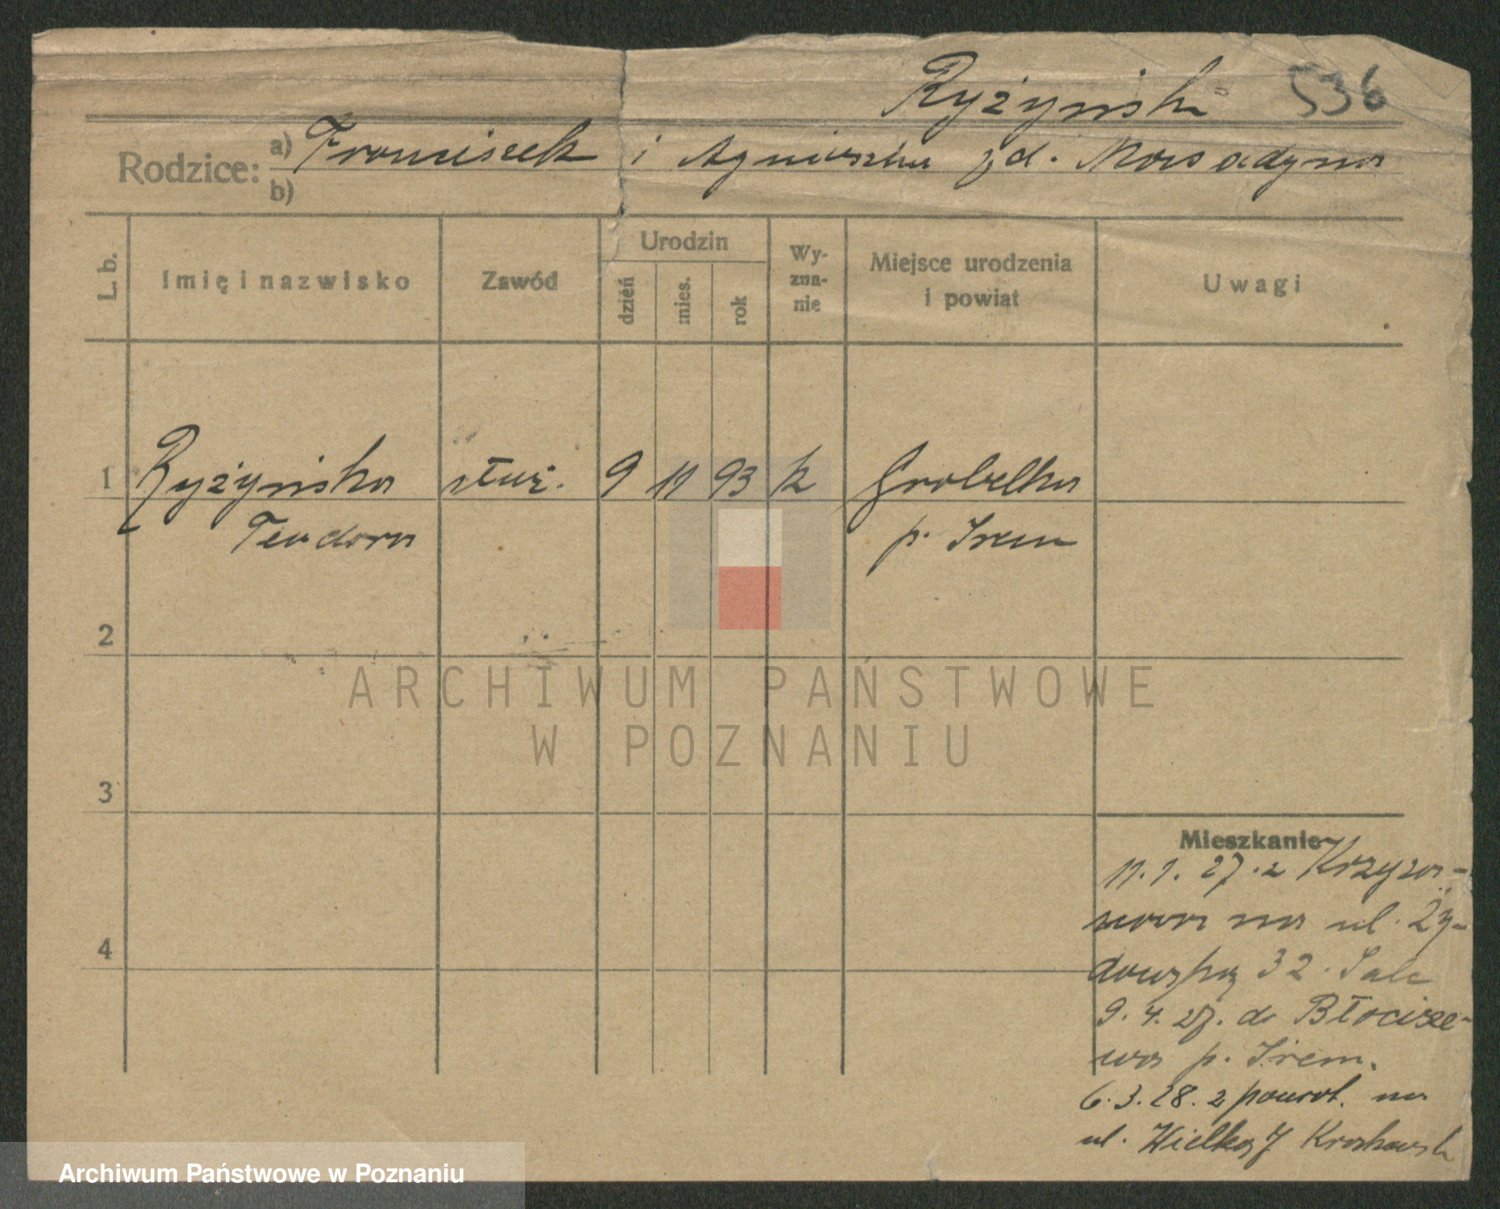 Ryżyńsk 536
Rodzice: a) Franciszek i Agnieszka zd. Masadyna
b)
L. b. Imię i nazwisko Zawód Urodzin dzień mies. rok Wy-zna-nie Miejsce urodzenia i powiat Uwagi
1 Ryżyńska służ. 9 11 93 k Grobelka
Teodora p. Śrem
2
3
4
Mieszkanie
11.1.27. z Krzyżo-
wa na ul. Ży-
dowską 32.
9.4.27. do Błocisze-
wa p. Śrem.
6.3.28. z powrot. na
ul. Wielką 7
ARCHIWUM PAŃSTWOWE
W POZNANIU
Archiwum Państwowe w Poznaniu